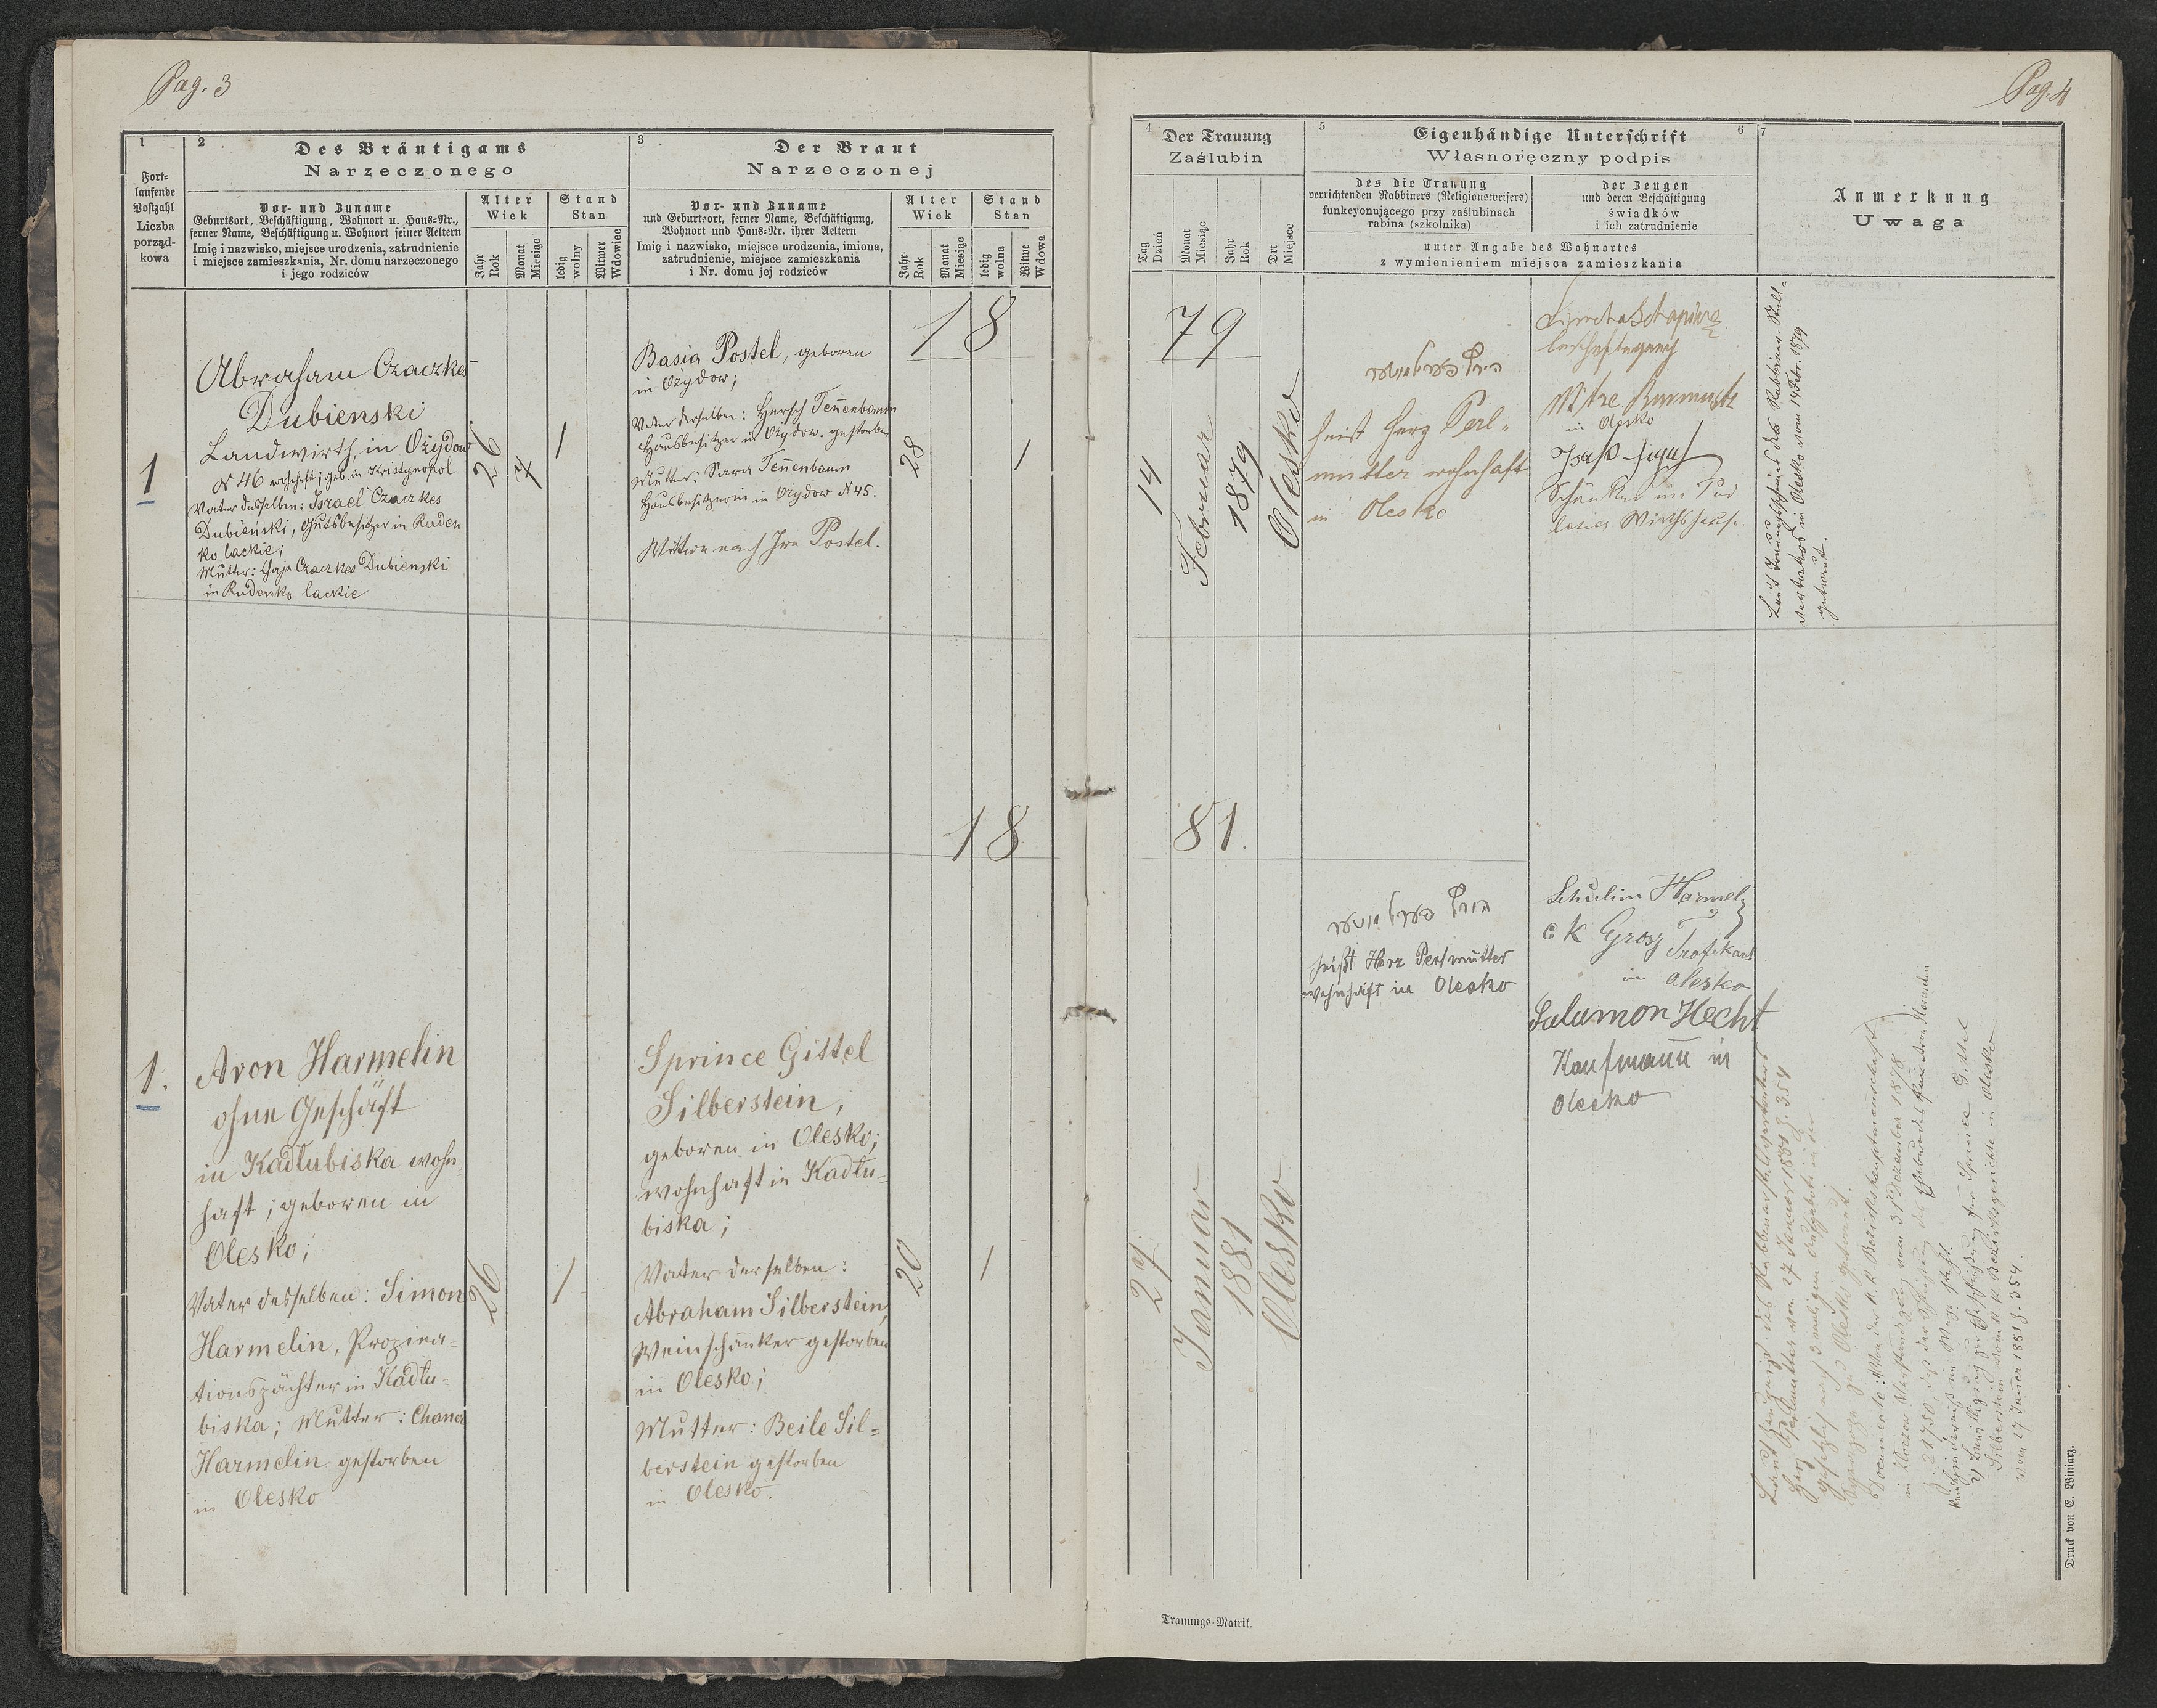 Pag. 3
1
Fort-
laufende
Postzahl
Liczba
porząd-
kowa
2
Des Bräutigams
Narzeczonego
Vor- und Zuname
Geburtsort, Beschäftigung, Wohnort u. Haus-Nr.,
ferner Name, Beschäftigung u. Wohnort seiner Aeltern
Imię i nazwisko, miejsce urodzenia, zatrudnienie
i miejsce zamieszkania, Nr. domu narzeczonego
i jego rodziców
Alter
Wiek
Jahr
Rok
Monat
Miesiąc
Stand
Stan
ledig
wolny
Witwer
Wdowiec
3
Der Braut
Narzeczonej
Vor- und Zuname
und Geburtsort, ferner Name, Beschäftigung,
Wohnort und Haus-Nr. ihrer Aeltern
Imię i nazwisko, miejsce urodzenia, imiona,
zatrudnienie, miejsce zamieszkania
i Nr. domu jej rodziców
Alter
Wiek
Jahr
Rok
Monat
Miesiąc
Stand
Stan
ledig
wolna
Witwe
Wdowa
18
1
Abraham Czaczkes
Dubienski
Landwirth, in Ożydow
N 46 wohnhaft; geb. in Kristynopol
Vater desselben: Israel Czaczkes
Dubieński, Gutsbesitzer in Ruden
ko lackie;
Mutter: Chaje Czaczkes Dubienski
in Rudenko lackie
26
7
1
Basia Postel, geboren
in Ożydow;
Vater derselben: Hersch Tennenbaum
Hausbesitzer in Ożydow. gestorben
Mutter: Sara Tennenbaum
Hausbesitzerin in Ożydow N 45.
Wittwe nach Postel.
28
1
18
1.
Aron Harmelin
ohne Geschäft
in Kadłubiska wohn
haft; geboren in
Olesko;
Vater desselben: Simon
Harmelin, Propina-
tionspächter in Kadłu-
biska; Mutter: Chana
Harmelin gestorben
in Olesko
26
1
Sprince Gittel
Silberstein,
geboren in Olesko;
wohnhaft in Kadłu-
biska;
Vater derselben:
Abraham Silberstein,
Weinschänker gestorben
in Olesko;
Mutter: Beile Sil-
berstein gestorben
in Olesko.
20
1
Pag. 4
4
Der Trauung
Zaślubin
Tag
Dzień
Monat
Miesiąc
Jahr
Rok
Ort
Miejsce
5
Eigenhändige Unterschrift
Własnoręczny podpis
6
des die Trauung
verrichtenden Rabbiners (Religionsweisers)
funkcyonującego przy zaślubinach
rabina (szkolnika)
der Zeugen
und deren Beschäftigung
świadków
i ich zatrudnienie
unter Angabe des Wohnortes
z wymienieniem miejsca zamieszkania
7
Anmerkung
Uwaga
79
14
Februar
1879
Olesko
הירץ פערלמוטער
heist Herz Perl-
mutter wohnhaft
in Olesko
in Olesko
Schänker im
Wirthshause.
Laut Trauungsscheines des Rabbiner-Stell-
vertreters in Olesko vom 14 Febr. 1879
getraut.
81.
27
Januar
1881
Olesko
הירץ פערלמוטער
heißt Herz Perlmutter
wohnhaft in Olesko
Schulim Harmelin
Grosz Trafikant
in Olesko
Salamon Hecht
Kaufmann in
Olesko
Laut Zeugniß des Rabbinatsstellvertreters
Herz Perlmutter von 27 Januar 1881 Z. 354
Documente: 1) Von der K. K. Bezirkshauptmannschaft
in Złoczow Verständigung vom 31 Dezember 1878
Silberstein vom K. K. Bezirksgerichte in Olesko
vom 27 Januar 1881 Z. 354.
Trauungs-Matrik.
Druck von E. Winiarz.